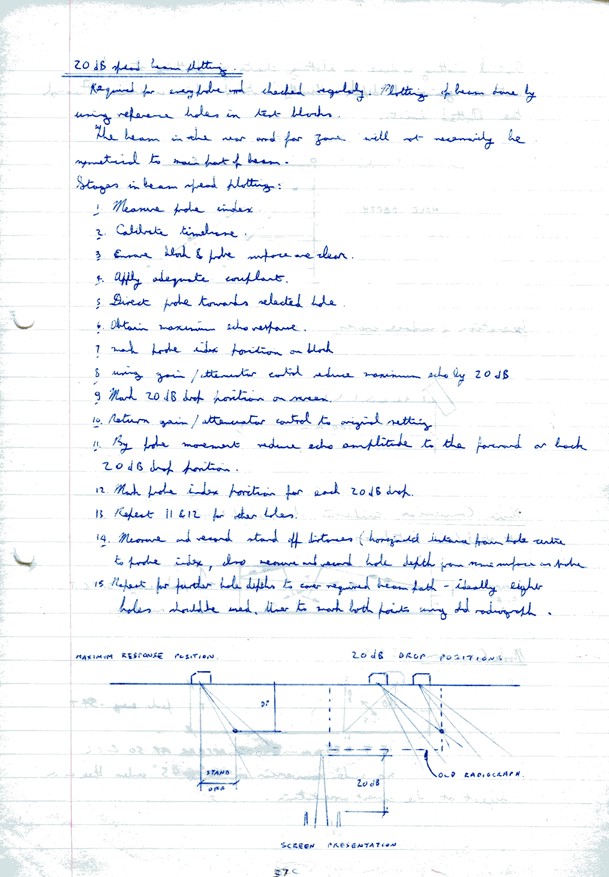 20 dB spead beam plotting.
Required for every probe and checked regularly. Plotting of beam done by
using reference holes in test blocks.
The beam in the near and far zone will not necessarily be
symetrical to main part of beam.
Stages in beam spead plotting:
1 Measure probe index.
2. Calibrate timebase.
3 Ensure block & probe surface are clear.
4. Apply adequate couplant.
5 Direct probe towards selected hole.
6. Obtain maximum echo response.
7 mark probe index position on block
8 using gain/attenuator control reduce maximum echo by 20 dB
9 Mark 20 dB drop position on screen.
10. Return gain/attenuator control to original setting
11. By probe movement reduce echo amplitude to the forward or back
20 dB drop position.
12. Mark probe index position for each 20 dB drop.
13. Repeat 11 & 12 for other holes.
14. Measure and record stand off distances (horizontal distance from hole centre
to probe index, also measure and record hole depth from same surface as probe
15. Repeat for further hole depths to cover required beam path - ideally eight
holes should be used. User to mark both points using old radiograph.
MAXIMIM RESPONSE POSITION. 20 dB DROP POSITIONS.
STAND
OFF
20 dB
OLD RADIOGRAPH.
SCREEN PRESENTATION
37C